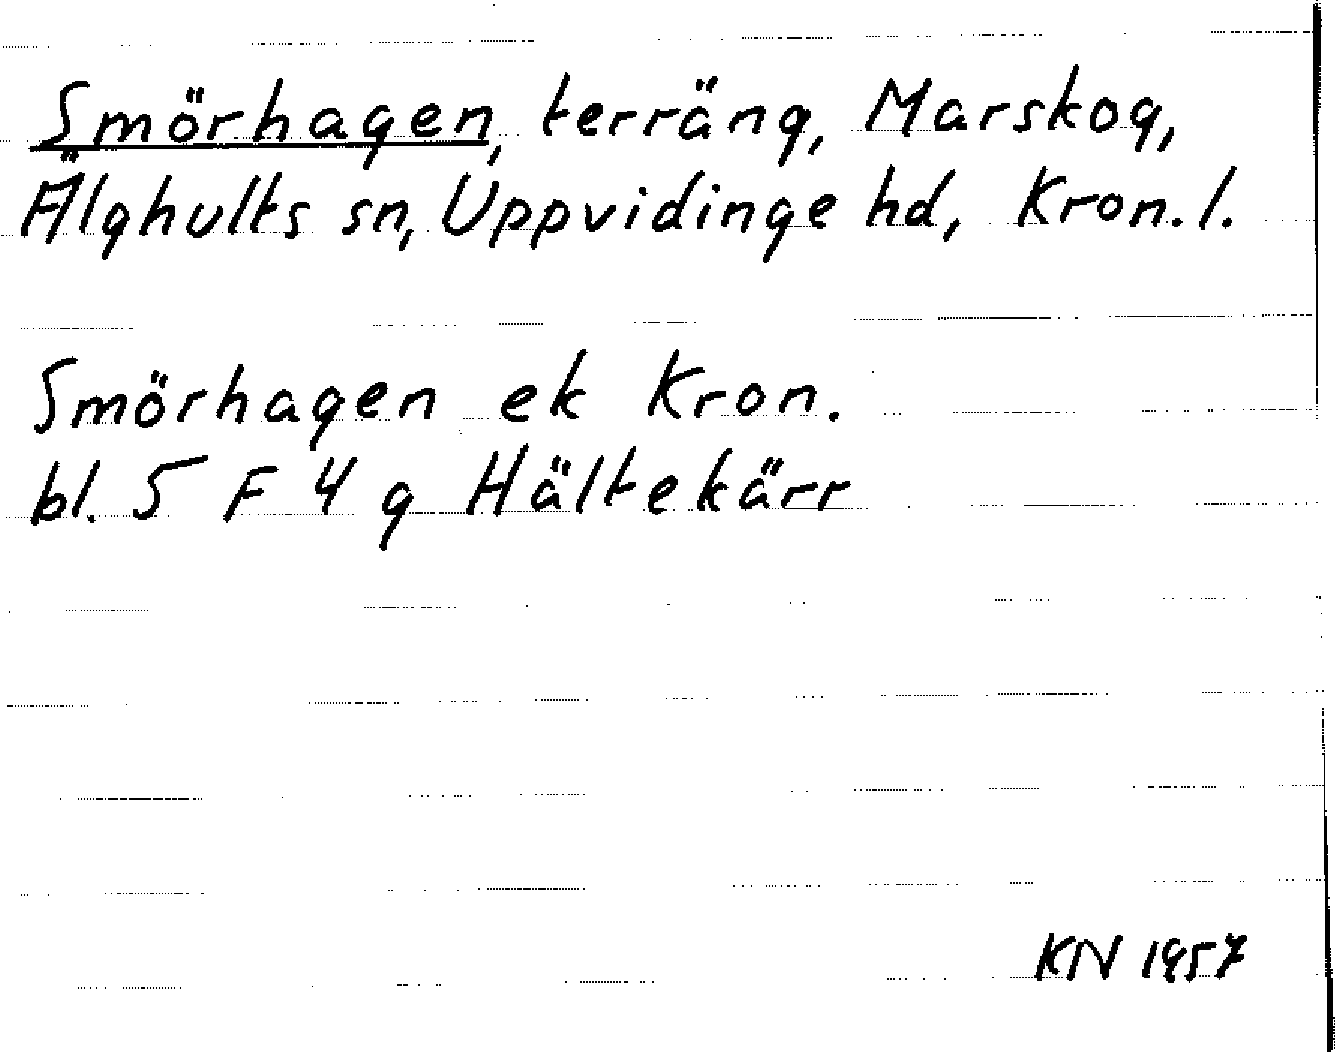 Smörhagen, terräng, Marskog,
Älghults sn, Uppvidinge hd, Kron. l.
Smörhagen ek Kron.
bl. 5 F 4 g Hältekärr
KN 1957